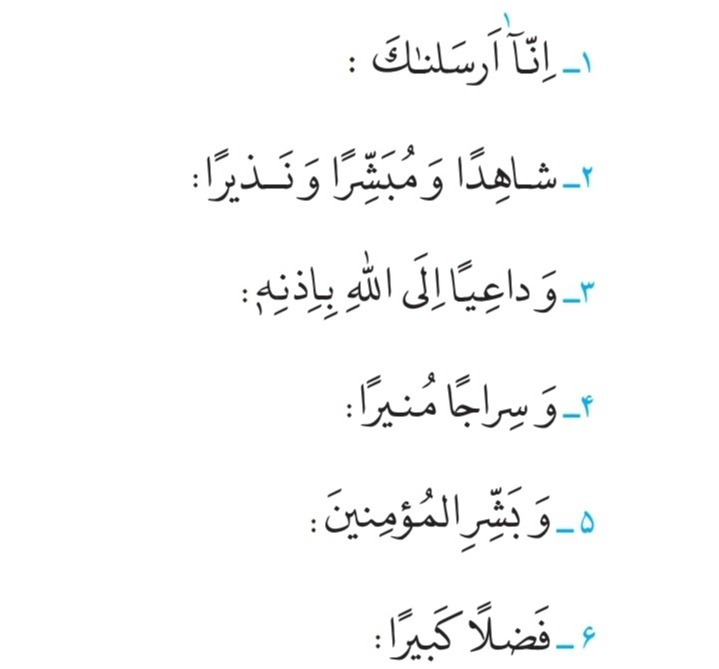 ۱ـ اِنّـَآ۱ اَرسَلنٰكَ :
۲ـ شاهِدًا وَ مُبَشِّرًا وَ نَـذيرًا:
۳ـ وَ داعِيًا اِلَى اللّٰهِ بِاِذنِهٖ:
۴ـ وَ سِراجًا مُنيرًا:
۵ـ وَ بَشِّرِ المُؤمِنينَ:
۶ـ فَضلًا كَبيرًا: